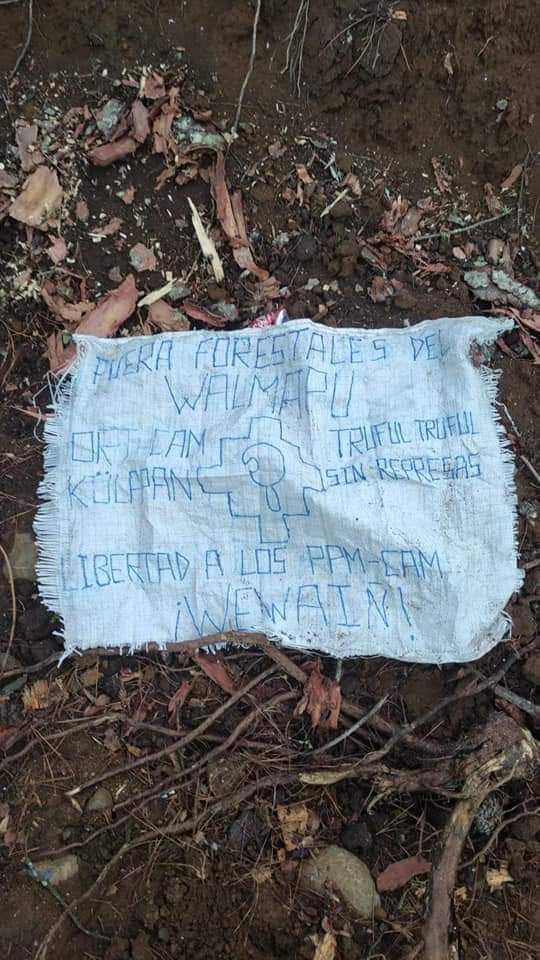 FUERA FORESTALES DEL
WALLMAPU
ORT CAM
KÜLAPAN
TRUFUL TRUFUL
SIN REPRESAS
LIBERTAD A LOS PPM-CAM
¡WEWAIÑ!